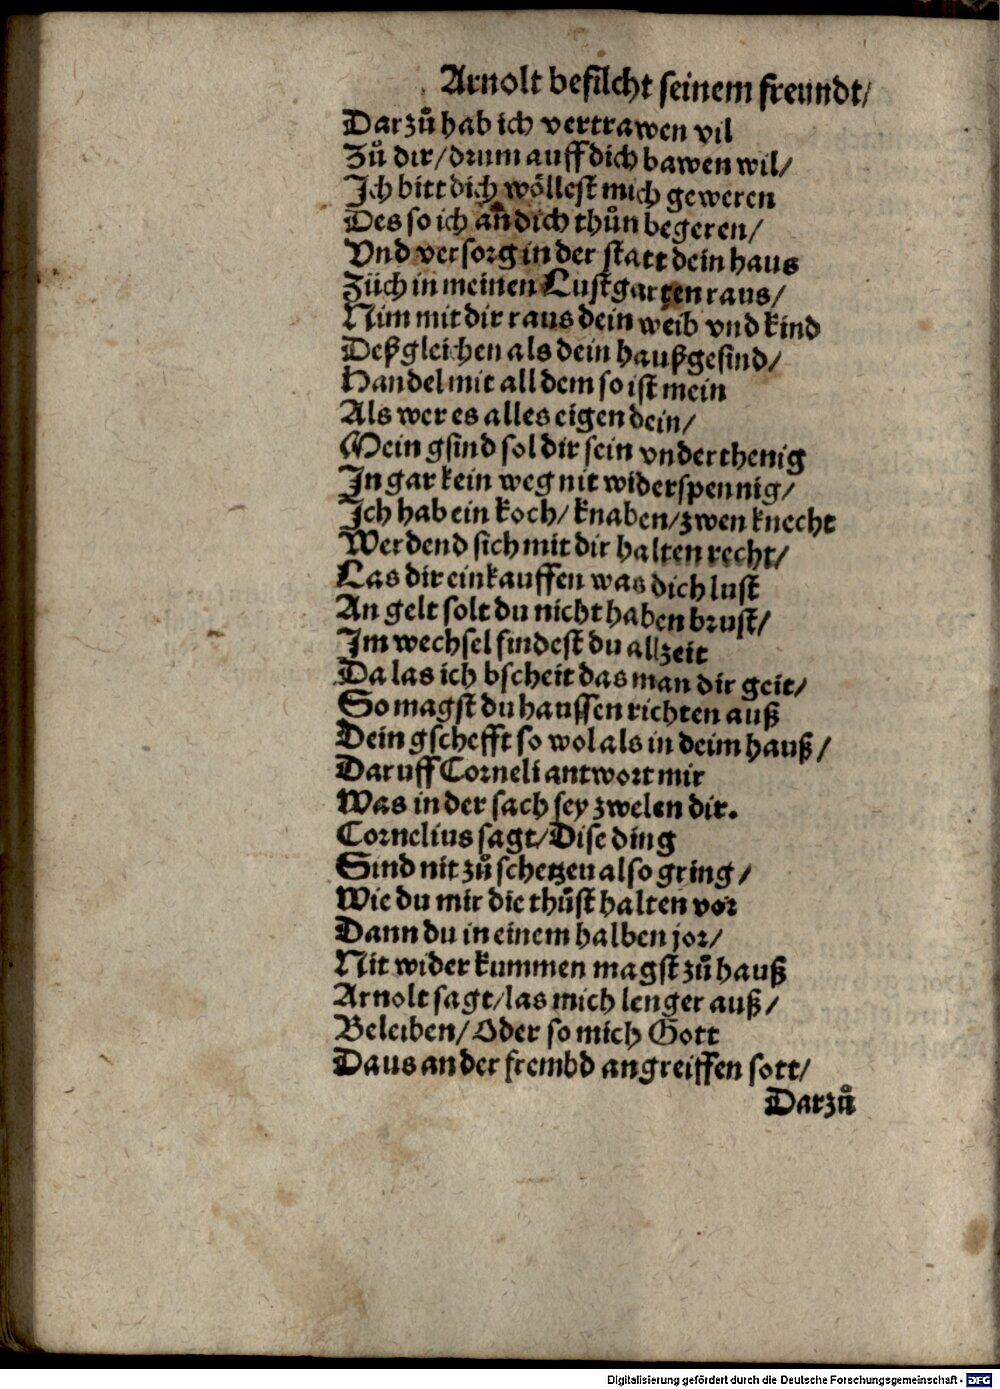 Arnolt befilcht seinem freundt/
Darzů hab ich vertrawen vil
Zů dir/drum auff dich bawen wil/
Ich bitt dich wöllest mich geweren
Des so ich an dich thůn begeren/
Vnd versorg in der statt dein haus
Züch in meinen Lustgarten raus/
Nim mit dir raus dein weib vnd kind
Deßgleichen als dein haußgesind/
Handel mit all dem so ist mein
Als wer es alles eigen dein/
Mein gsind sol dir sein vnderthenig
In gar kein weg nit widerspennig/
Ich hab ein koch/ knaben/zwen knecht
Werdend sich mit dir halten recht/
Las dir einkauffen was dich lust
An gelt solt du nicht haben brust/
Im wechsel findest du allzeit
Da las ich bscheit das man dir geit/
So magst du haussen richten auß
Dein gschefft so wol als in deim hauß/
Daruff Corneli antwort mir
Was in der sach sey zwelen dir.
Cornelius sagt/Dise ding
Sind nit zů schetzen also gring/
Wie du mir die thůst halten vor
Dann du in einem halben jor/
Nit wider kummen magst zů hauß
Arnolt sagt/las mich lenger auß/
Beleiben/ Oder so mich Gott
Daus an der frembd angreiffen sott/
Darzů
Digitalisierung gefördert durch die Deutsche Forschungsgemeinschaft - DFG